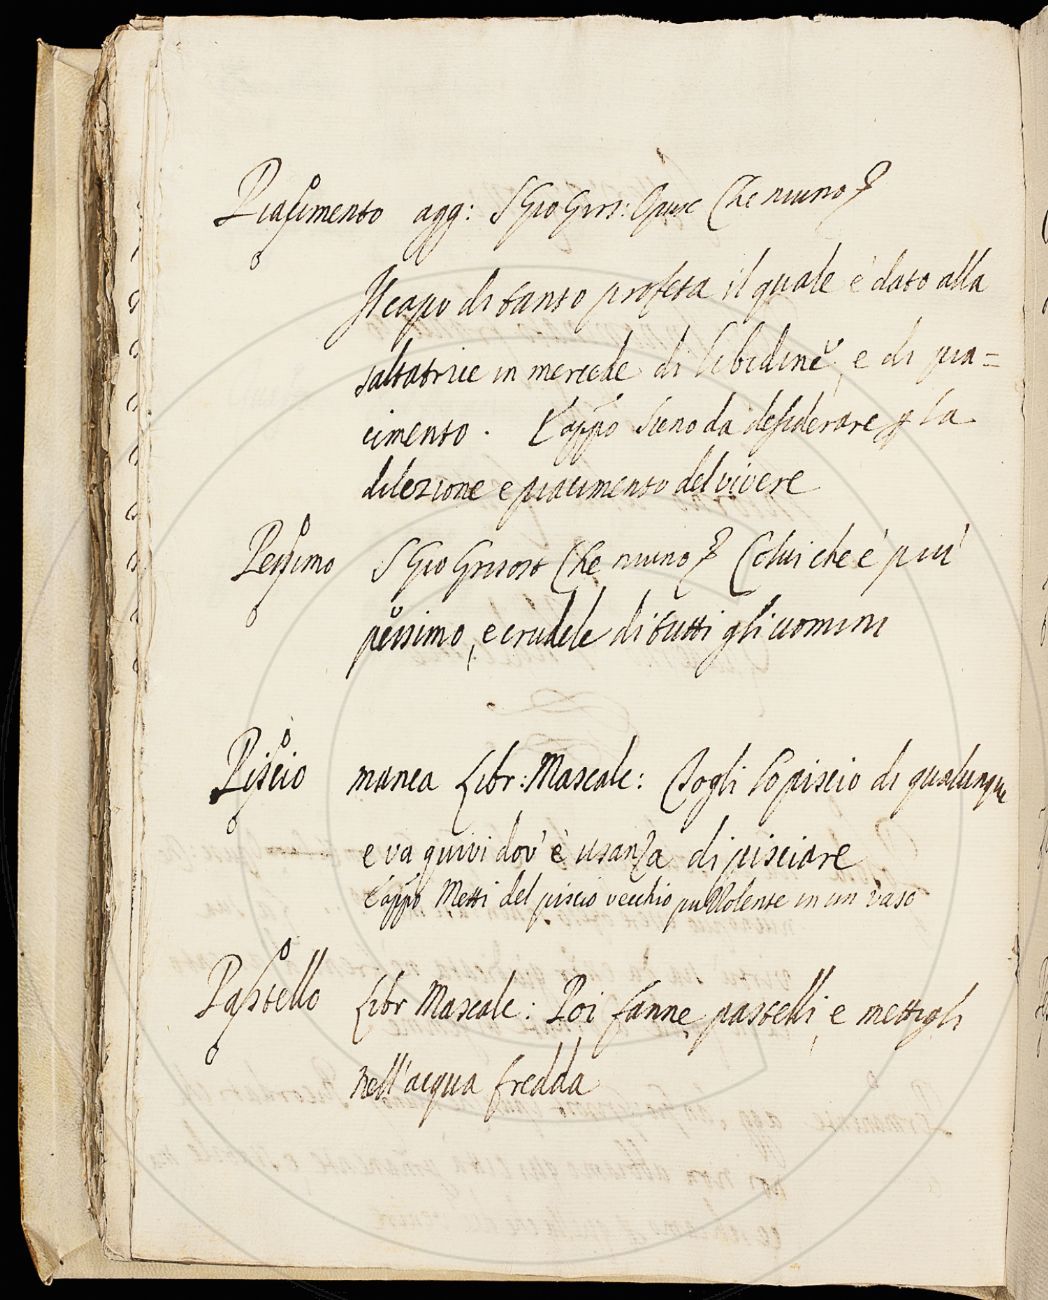 Piacimento agg: S Gio Gris: Opusc Che niuno
Il capo di santo profeta il quale è dato alla
saltatrice in mercede di libidine, e di pia=
cimento. E appo Sieno da desiderare p la
dilezione e piacimento del vivere
Pessimo S Gio Grisost Che niuno Colui che è più
pessimo, e crudele di tutti gli uomini
Piscio manca Libr: Mascalc: Togli lo piscio di qualunque
e va quivi dov' è usanza di pisciare
E appo Metti del piscio vecchio puzzolente in un vaso
Pastello Libr Mascalc: Poi fanne pastelli, e mettigli
nell'acqua fredda